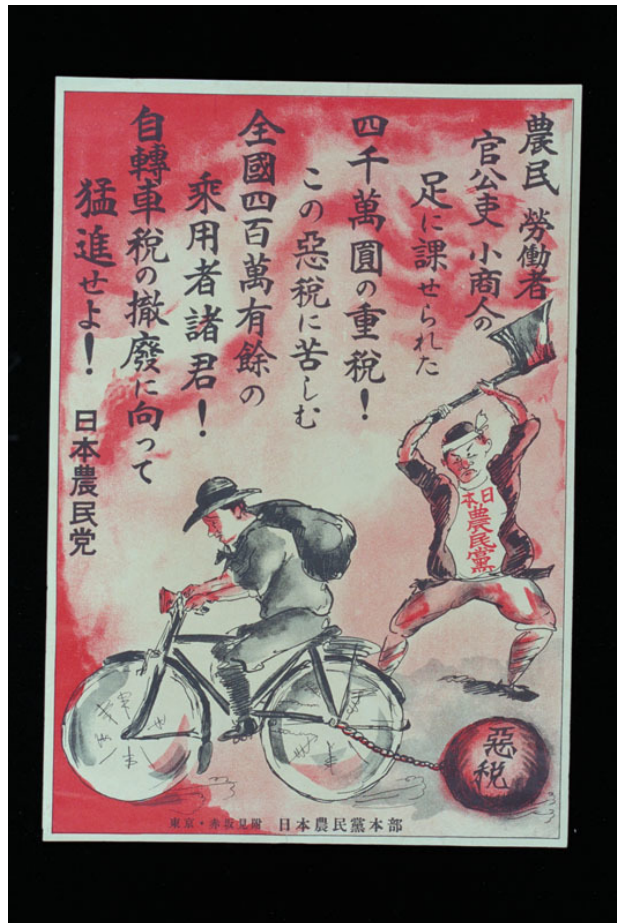 農民 勞働者
官公吏 小商人の
足に課せられた
四千萬圓の重税!
この惡税に苦しむ
全國四百萬有餘の
乘用者諸君!
自轉車税の撤廢に向って
猛進せよ!
日本農民党
日本農民黨
惡税
東京・赤坂見附 日本農民黨本部